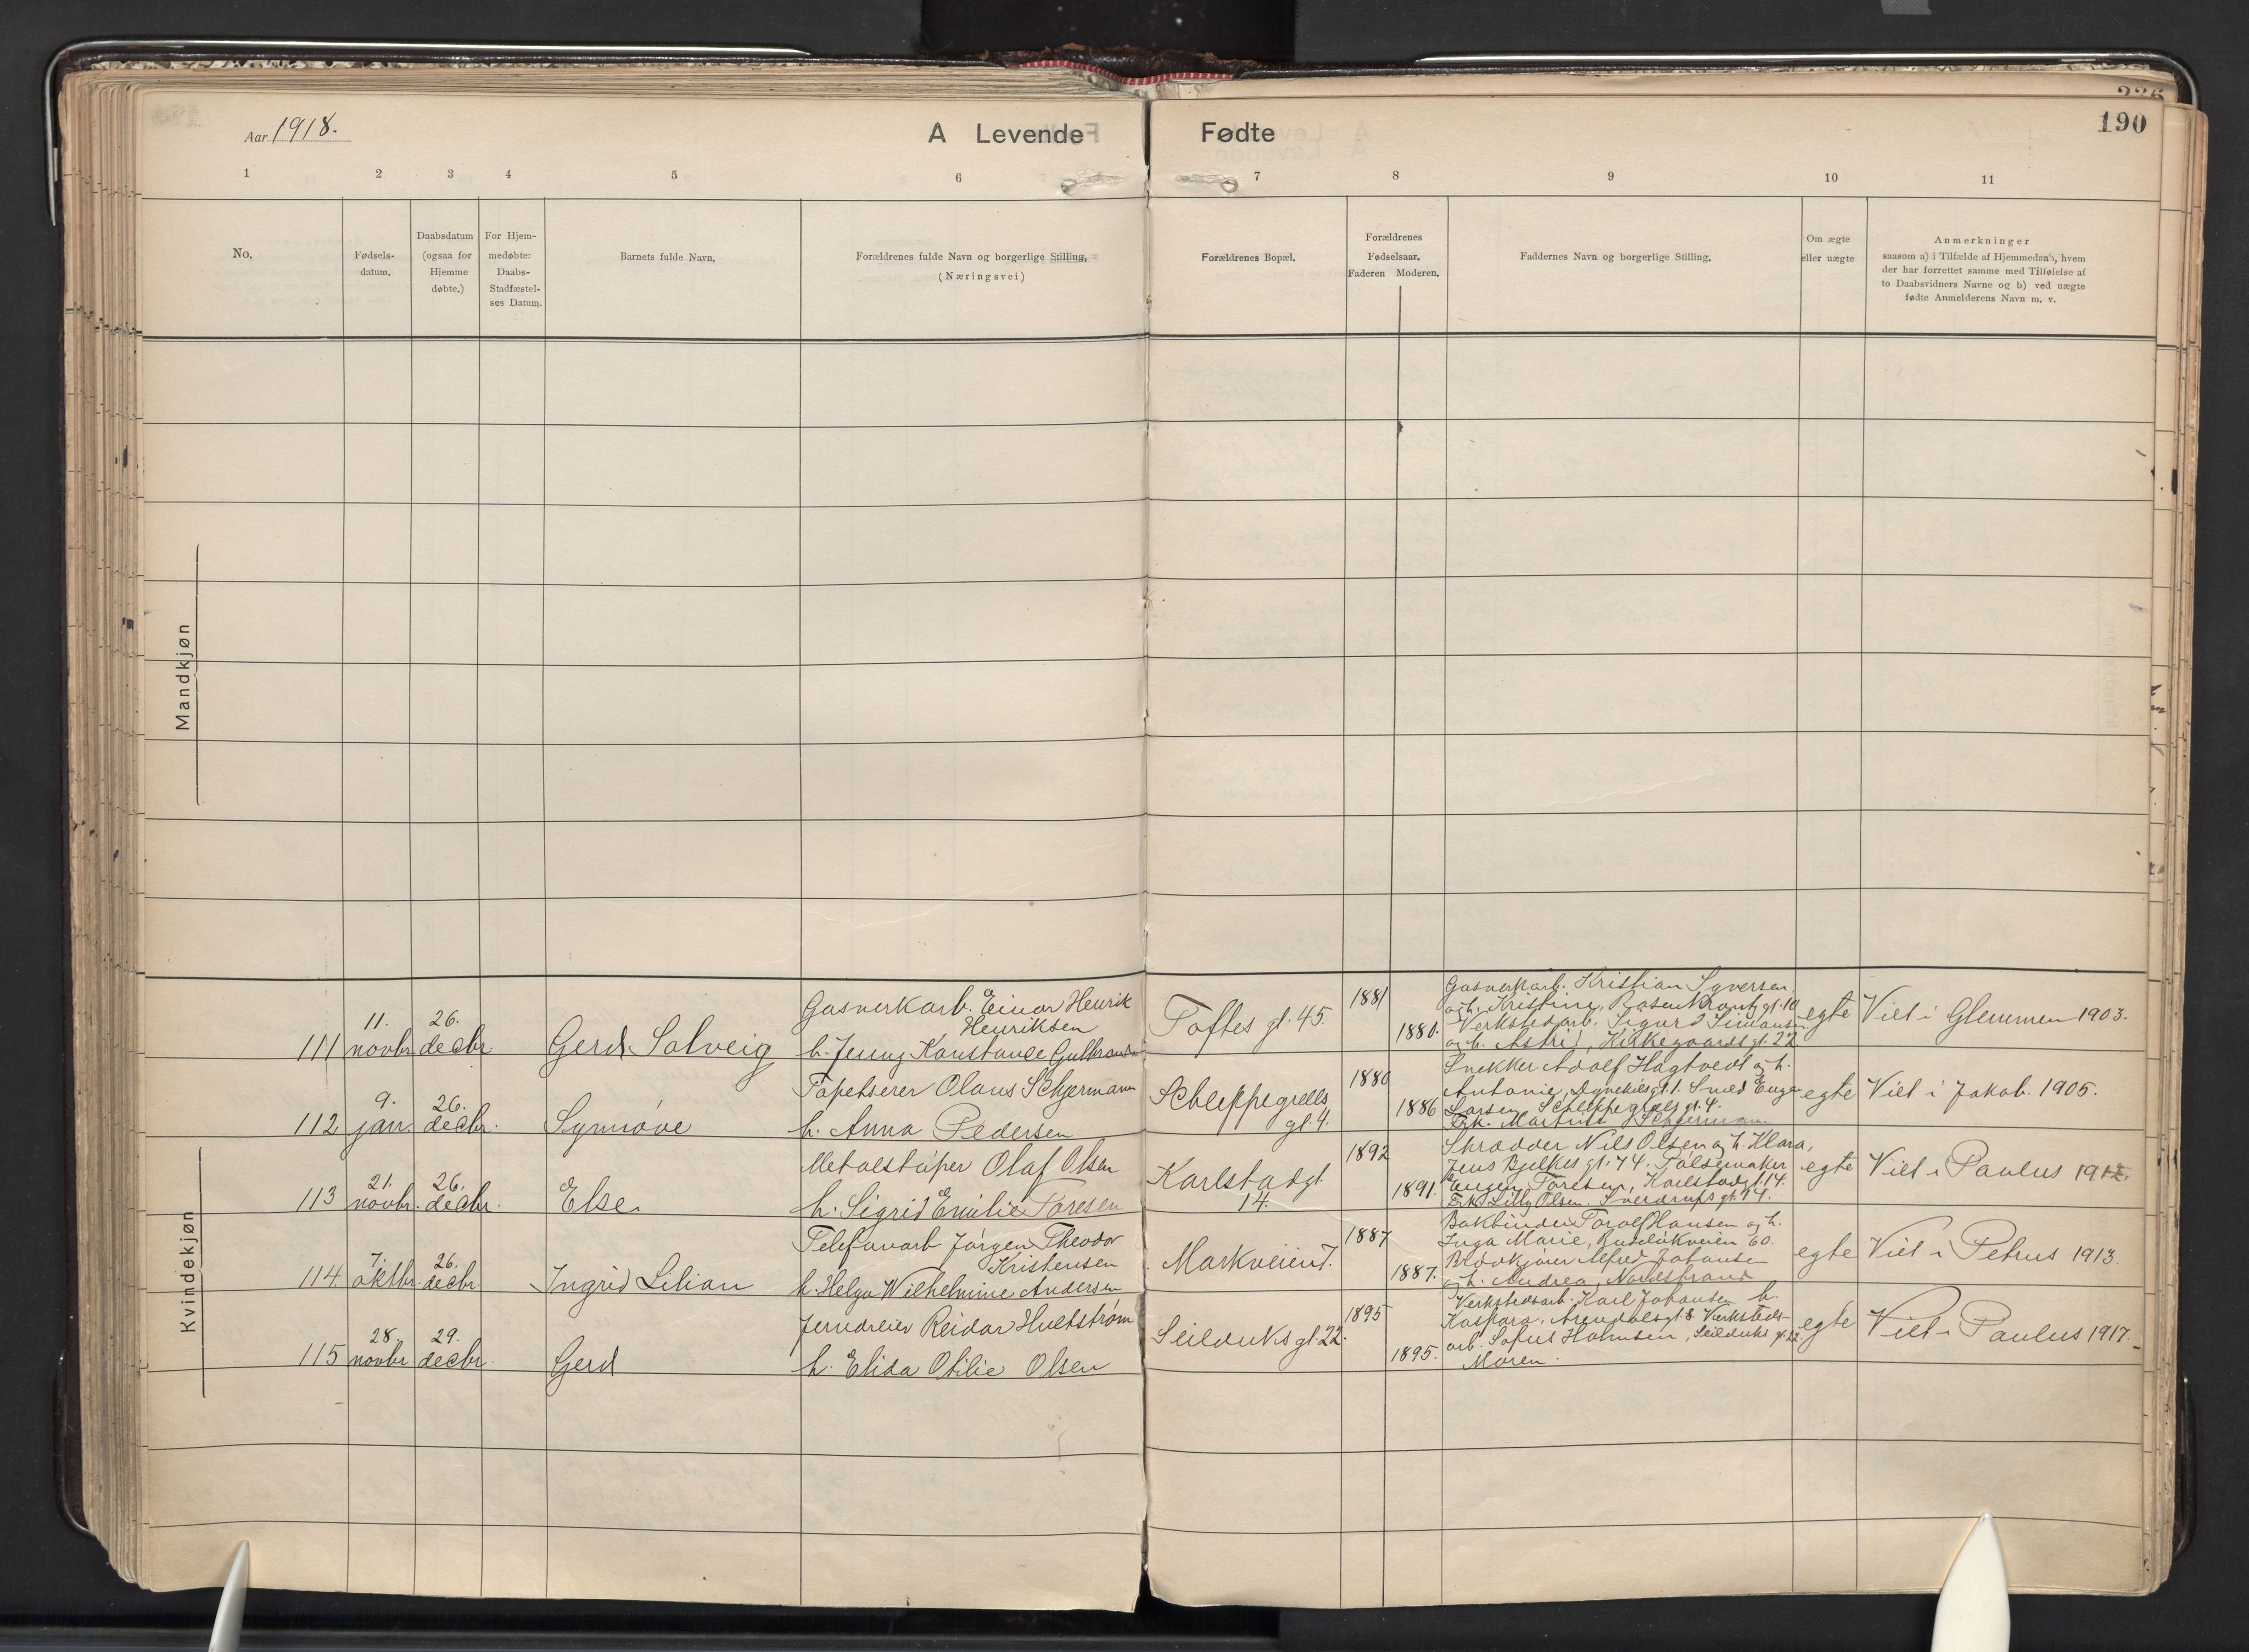 Aar 1918.
A Levende Fødte
190
1 2 3 4 5 6 7 8 9 10 11
No.
Fødsels-
datum.
Daabsdatum
(ogsaa for
Hjemme
døbte.)
For Hjem-
medøbte:
Daabs-
Stadfæstel-
ses Datum.
Barnets fulde Navn.
Forældrenes fulde Navn og borgerlige Stilling.
(Næringsvei)
Forældrenes Bopæl.
Forældrenes
Fødselsaar.
Faderen Moderen.
Faddernes Navn og borgerlige Stilling.
Om ægte
eller uægte
Anmerkninger
saasom a) i Tilfælde af Hjemmedaab, hvem
der har forrettet samme med Tilføielse af
to Daabsvidners Navne og b) ved uægte
fødte Anmelderens Navn m. v.
Mandkjøn
Kvindekjøn
111
11.
novbr.
26.
decbr.
Gerd Solveig
Gasverkarb. Einar Henrik
Henriksen
h. Jenny Konstance
Toftes gt. 45.
1881
1880.
Gasverkarb. Kristian Syversen
og h. Kristine, Rosenkrantz gt. 10
Verkstedarb. Sigurd Simonsen
og h. Astrid, Kirkegaardsgt. 22
egte
Viet i Glemmen 1903.
112
9.
jan.
26.
decbr.
Synnøve
Tapetserer Olaus Schjermann
h. Anna Pedersen
Schleppegrells
gt. 4.
1880
1886
Snekker Adolf Hagtvedt og h.
Antonie, Dynekilsgt. 1. Smed
Larsen Schleppegrels gt. 4.
Frk. Schjermann
egte
Viet i Jakob. 1905.
113
21.
novbr.
26.
decbr.
Else
Metalstøper Olaf Olsen
h. Sigrid Emilie Toresen
Karlstadgt.
14.
1892
1891.
Skrædder Nils Olsen og h. Klara,
Jens Bjelkes gt. 74. Pølsemaker
Eugen Toresen, Karlstadgt. 14.
Frk. Lilly Olsen Sverdrups gt. 14.
egte
Viet i Paulus
114
7.
oktbr.
26.
decbr.
Ingrid Lilian
Telefonarb Jørgen Theodor
Kristensen
h. Helga Wilhelmine Andersen
Markveien 7.
1887
1887.
Bokbinder Torolf Hansen og h.
Inga Marie, 60.
Brødkjører Alfred Johansen
og h. Andrea, Nordstrand
egte
Viet i Petrus 1913.
115
28.
novbr
29.
decbr.
Gerd
Jerndreier Reidar Hultstrøm
h. Elida Otilie Olsen
Seilduks gt 22.
1895
1895.
Verkstedsarb. Karl Johansen h.
Kaspara, Arendalsgt. 8 Verksteds-
arb. Sofus Holmsen, Seilduks gt. 22
Maren.
egte
Viet i Paulus 1917.